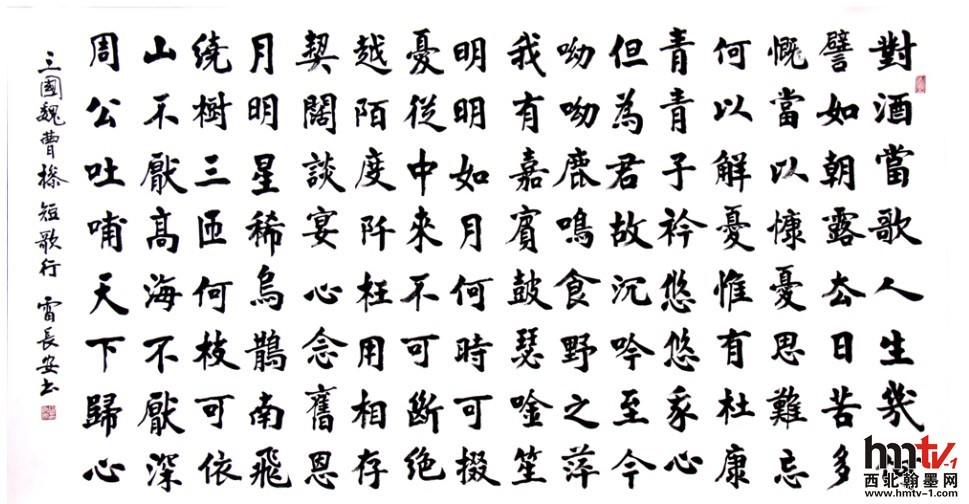 對酒當歌人生幾
譬如朝露去日苦多
慨當以慷憂思難忘
何以解憂惟有杜康
青青子衿悠悠我心
但為君故沉吟至今
呦呦鹿鳴食野之萍
我有嘉賓鼓瑟唫笙
明明如月何時可掇
憂從中來不可斷絶
越陌度阡枉用相存
契闊談宴心念舊恩
月明星稀烏鵲南飛
繞樹三匝何枝可依
山不厭高海不厭深
周公吐哺天下歸心
三國魏曹操短歌行 雷長安书
hmtv-1
西北翰墨网
www.hmtv-1.com